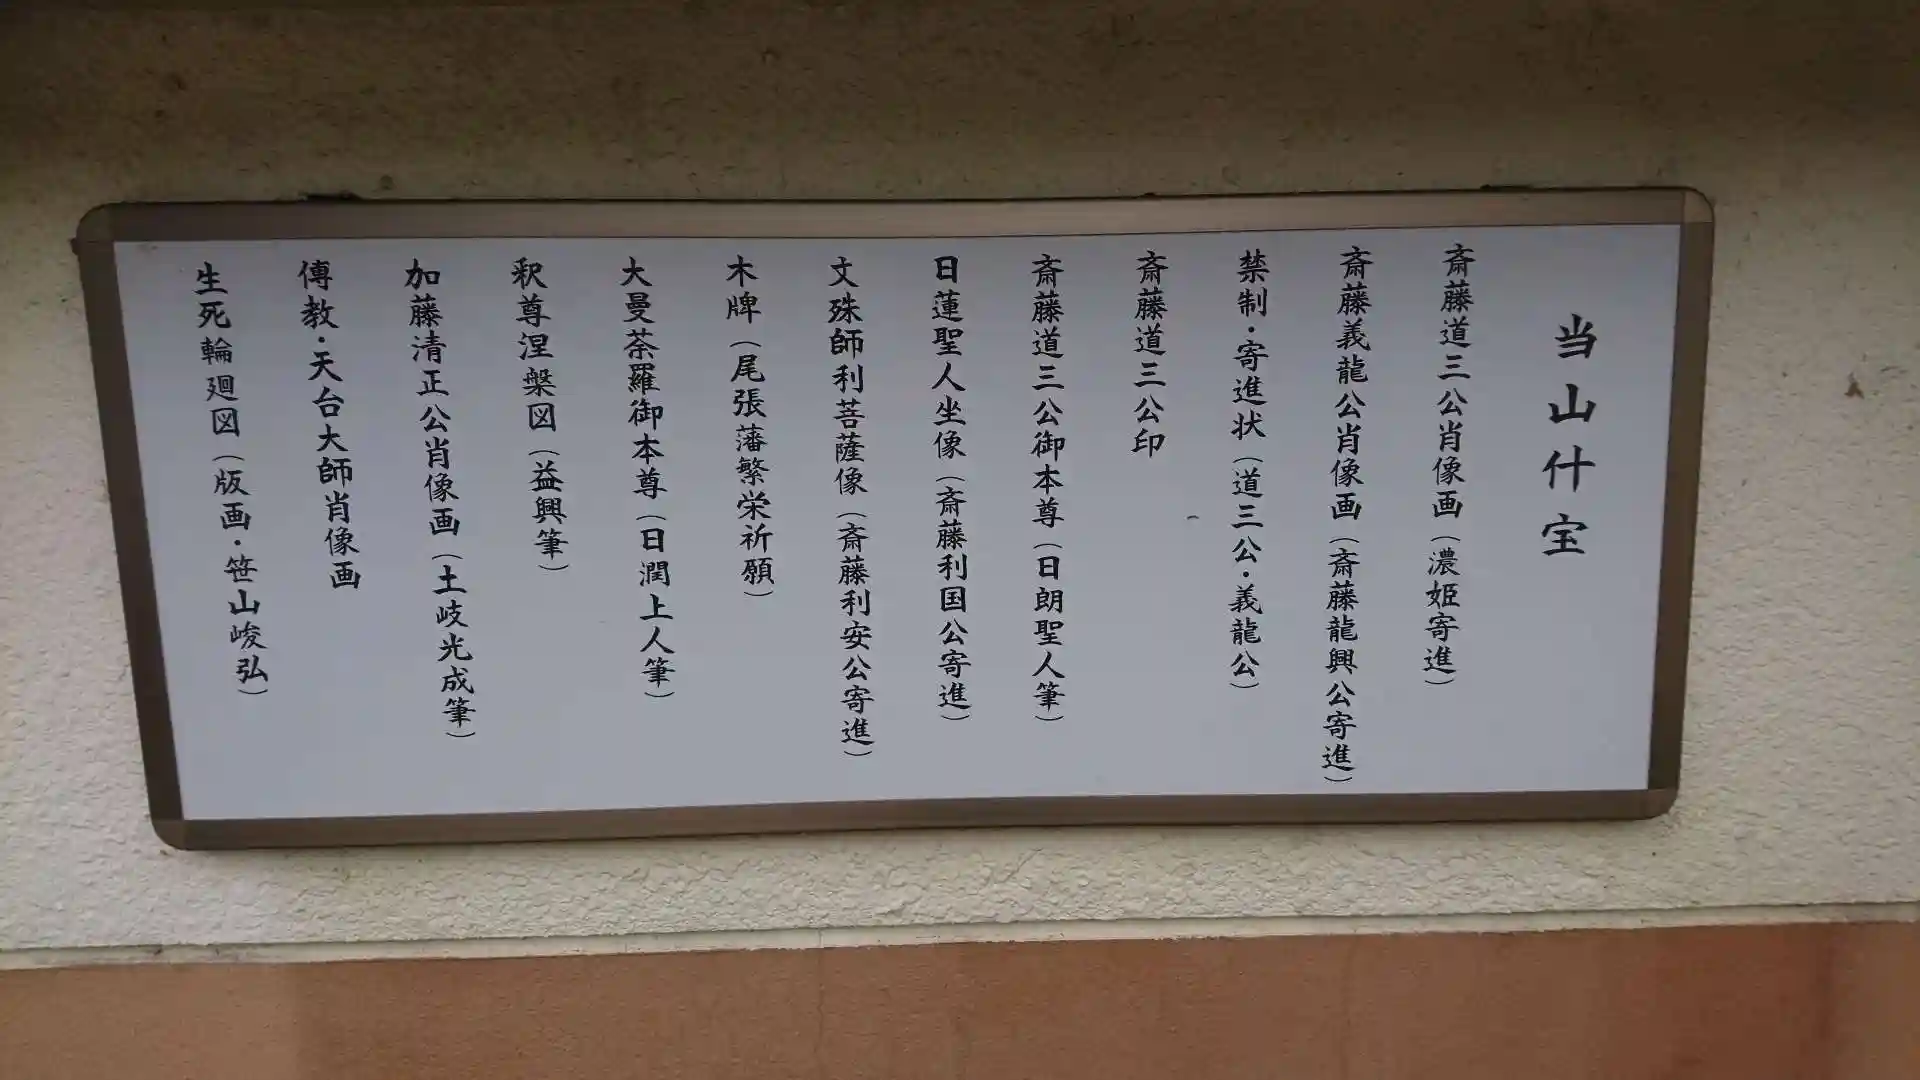 当山什宝
斎藤道三公肖像画（濃姫寄進）
斎藤義龍公肖像画（斎藤龍興公寄進）
禁制・寄進状（道三公・義龍公）
斎藤道三公印
斎藤道三公御本尊（日朗聖人筆）
日蓮聖人坐像（斎藤利国公寄進）
文殊師利菩薩像（斎藤利安公寄進）
木牌（尾張藩繁栄祈願）
大曼荼羅御本尊（日潤上人筆）
釈尊涅槃図（益興筆）
加藤清正公肖像画（土岐光成筆）
傳教・天台大師肖像画
生死輪廻図（版画・笹山峻弘）